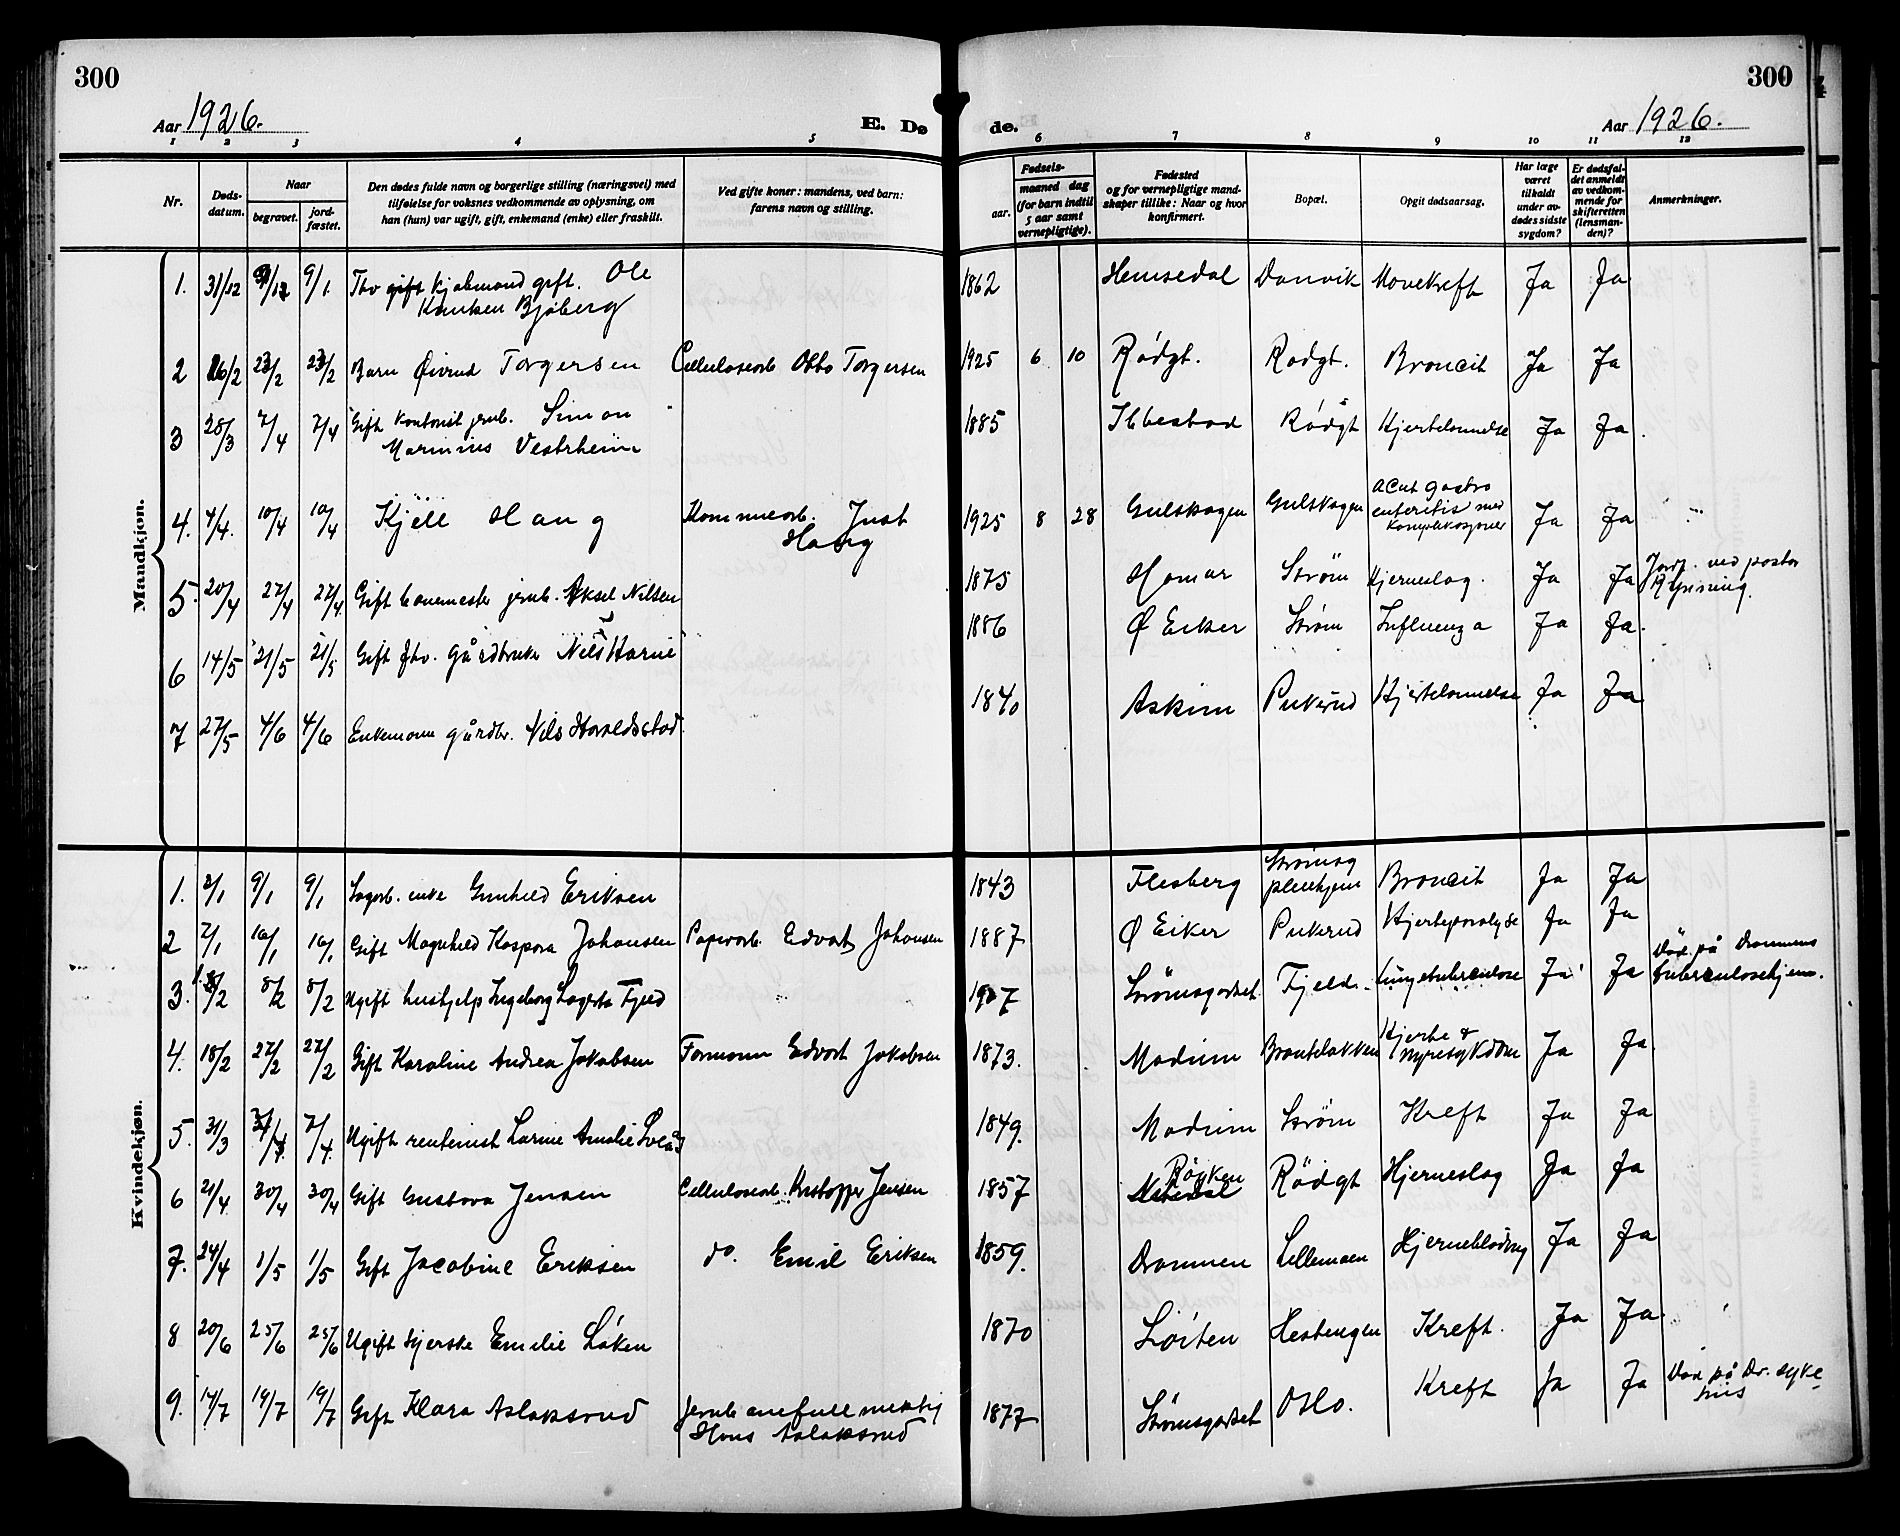 300
300
Aar 1926.
E. Dø
de.
Aar 1926.
1 2 3 4 5 6 7 8 9 10 11 12
Nr.
Døds-
datum.
Naar
begravet.
jord-
fæstet.
Den dødes fulde navn og borgerlige stilling (næringsvei) med
tilføielse for voksnes vedkommende av oplysning, om
han (hun) var ugift, gift, enkemand (enke) eller fraskilt.
Ved gifte koner: mandens, ved barn:
farens navn og stilling.
Fødsels-
aar.
maaned dag
(for barn indtil
5 aar samt
vernepligtige).
Fødested
og for vernepligtige mand-
skaper tillike: Naar og hvor
konfirmert.
Bopæl.
Opgit dødsaarsag.
Har læge
været
tilkaldt
under av-
dødes sidste
sygdom?
Er dødsfal-
det anmeldt
av vedkom-
mende for
skifteretten
(lensman-
den)?
Anmerkninger.
Mandkjøn.
1. 31/12 9/1 gift. Ole 1862 Hemsedal Danvik Mavekreft Ja Ja
Knutsen Bjøberg
2 16/2 23/2 23/2 Barn Øivind Torgersen Cellulosearb Otto Torgersen 1925 6 10 Rødgt. Rødgt. Broncit Ja Ja
3 28/3 7/4 7/4 Gift kontorist jernb. Simon 1885 Ibbestad Rødgt Hjertelammelse Ja Ja
Marinius Vestrheim
4. 4/4. 10/4 10/4 Kjell Haug Kommunearb. Just 1925 8 28 Gulskogen Gulskogen acut gastro Ja Ja
Haug
enteritis med
komplikasjoner
5. 20/4 27/4 27/4. Gift banemester jernb. Aksel Nilsen 1875 Hamar Strøm Hjerneslag. Ja Ja Jordf. ved pastor
Rynning.
6 14/5 21/5 21/5 Gift fhv. gårdbruker Nils Harvie 1886 Ø Eiker Strøm Influenza Ja Ja.
7 27/5 4/6 4/6 Enkemann gårdbr. Nils Haraldsstad 1840 Askim Pukerud Hjertelammelse Ja Ja
Kvindekjøn.
1. 2/1 9/1 9/1 Sagarb. enke Gunhild Eriksen 1843 Flesberg Strømsg Broncit Ja Ja
pleiehjem
2 7/1 16/1 16/1 Gift Magnhild Kaspara Johansen Papirarb. Edvart Johansen 1887 Ø Eiker Pukerud Hjerteparalyse Ja Ja
3. 1/2 8/2 8/2 Ugift hushjelp Ingeborg Lagerta Fjeld 1907 Strømsgodset Fjeld. Lungetuberculose Ja Ja Død på Drammens
tuberculosehjem.
4. 18/2 27/2 27/2 Gift Karoline Andrea Jakobsen Formann Edvart Jakobsen 1873. Modum Brantelakken Hjerte & Ja Ja
Nyresykdom
5. 31/3 7/4 7/4. Ugift rentenist Larine Amalie 1849. Modum Strøm Kreft Ja Ja
6 21/4 30/4 30/4 Gift Gustava Jensen Cellulosearb. Kristoffer Jensen 1857 Røyken Rødgt Hjerneslag Ja Ja
7. 24/4 1/5 1/5 Gift Jacobine Eriksen do. Emil Eriksen 1859. Drammen Lillemoen Hjerneblødning Ja Ja
8 20/6 25/6 25/6 Ugift syerske Emilie Løken 1870 Løiten Hestengen Kreft. Ja Ja
9. 14/7 19/7 19/7 Gift Klara Aslaksrud Jernb anefullmektig 1877 Strømsgodset Oslo. Kreft Ja Ja Død på Dr. syke
Hans Aslaksrud
hus